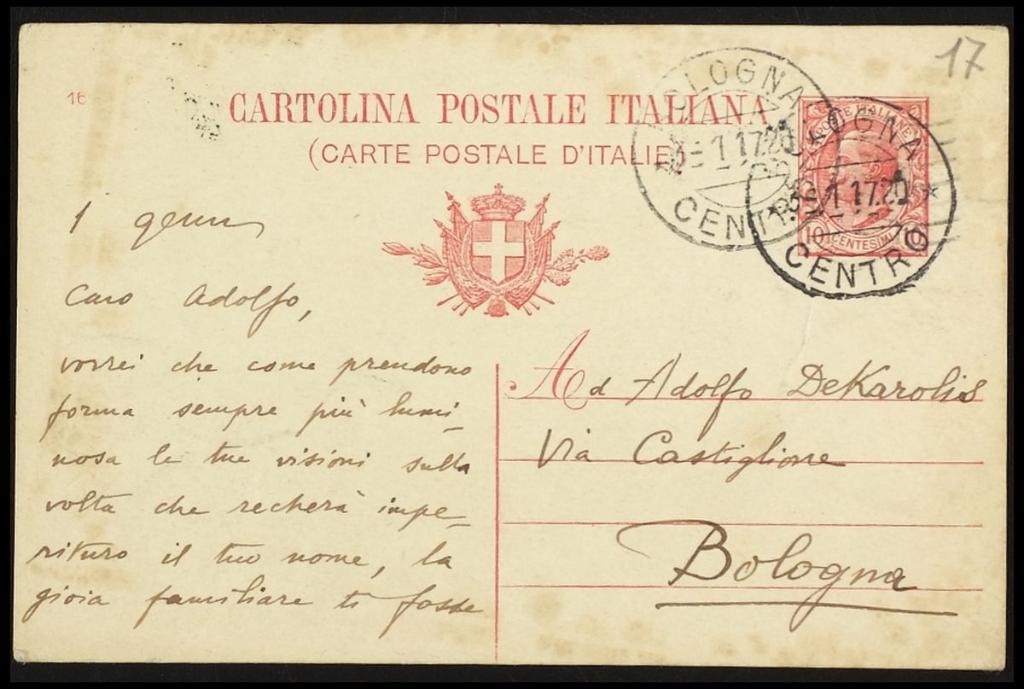 17
16
CARTOLINA POSTALE ITALIANA
(CARTE POSTALE D'ITALIE)
BOLOGNA
1 17.20
CENTRO
BOLOGNA
1 17.20
CENTRO
10 CENTESIMI 10
1 genn
Caro Adolfo,
vorrei che come prendono
forma sempre più lumi-
nosa le tue visioni sulla
volta che recherà impe-
rituro il tuo nome, la
gioia famigliare ti fosse
Ad Adolfo DeKarolis
Via Castiglione
Bologna